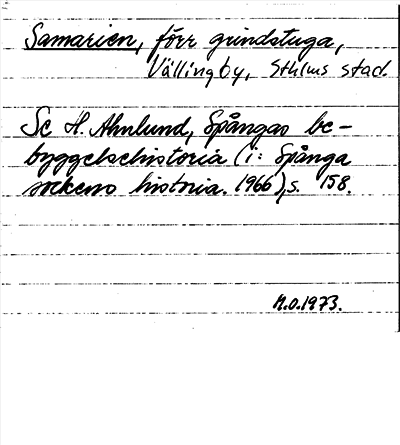 Samarien, förr grindstuga,
Vällingby, Sthlms stad.
Se H. Ahnlund, Spångas be-
byggelsehistoria (i: Spånga
sockens historia. 1966), s. 158.
M.O. 1973.